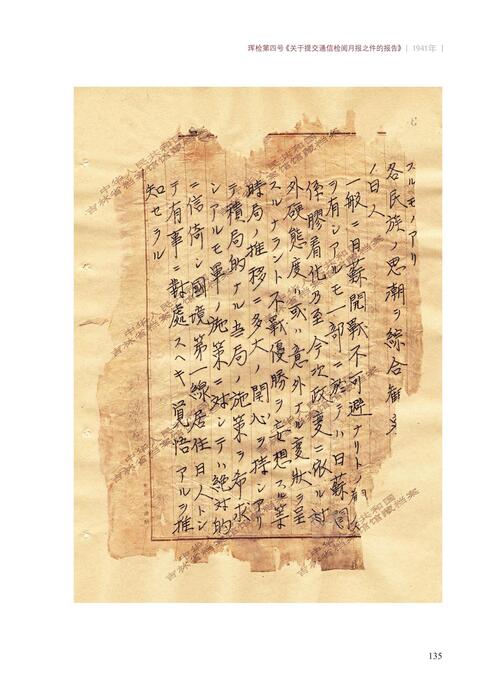 珲检第四号《关于提交通信检阅月报之件的报告》 | 1941年 |
スルモノアリ
各民族ノ思潮ヲ綜合観
ノ日人
一般ニ日蘇開戦不可避ナリトノ
ヲ有シアルモ一部ニ於テハ日蘇関
係膠着化乃至今次政変ニ依ル対
外硬態度ハ或ハ意外ナル変狀ヲ呈
スルナラント不戰優勝ヲ妄想スル等
時局ノ推移ニ多大ノ関心ヲ持シアリ
テ積局的ナル当局ノ施策ヲ希求
シアルモ軍ノ施策ニ対シテハ絶対的
ニ信倚シ國境第一線居住日人トシ
テ有事ニ對處スヘキ覚悟アルヲ推
知セラル
中华人民共和国
吉林省档案馆馆藏档案
135